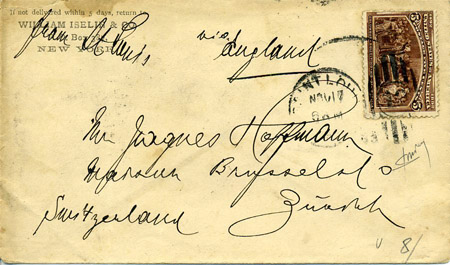 If not delivered within 5 days, return to
WILLIAM ISELIN & CO.
Box
NEW YORK
from St Louis
via England
SAINT LOU
NOV 17
93
Mr Jacques Hoffmann
Brussels
Switzerland Zürich
8/